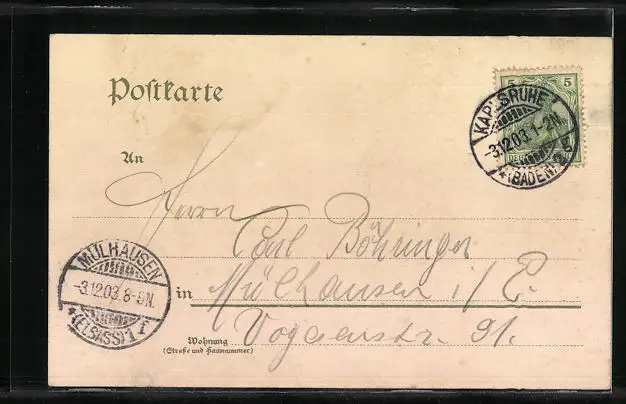 Postkarte
5 5
KARLSRUHE
-3.12.03.1-2N.
(BADEN)
An
Herrn
Carl Böhringer
MÜLHAUSEN
-3.12.03.8-9N.
(ELSASS) 1
in Mülhausen i/E.
Vogesenstr. 91.
Wohnung
(Straße und Hausnummer)